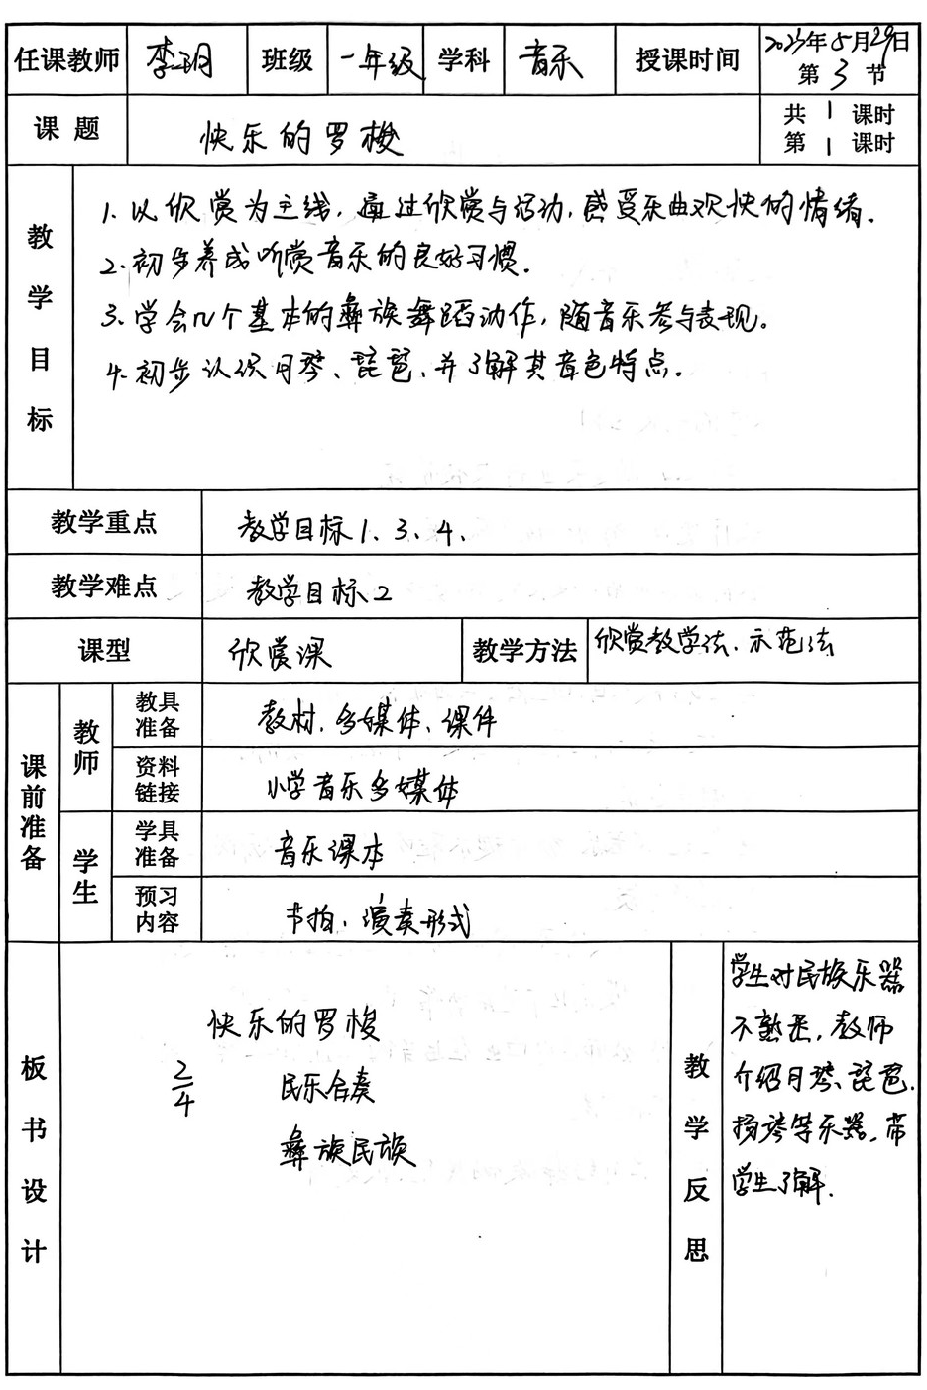 任课教师 李玥 班级 一年级 学科 音乐 授课时间 2023年5月29日
第 3 节
课题 快乐的罗梭 共 1 课时
第 1 课时
教学目标
1. 以欣赏为主线，通过欣赏与活动，感受乐曲欢快的情绪.
2. 初步养成听赏音乐的良好习惯.
3. 学会几个基本的彝族舞蹈动作，随音乐参与表现。
4. 初步认识月琴、琵琶，并了解其音色特点.
教学重点 教学目标1、3、4、
教学难点 教学目标2
课型 欣赏课 教学方法 欣赏教学法、示范法
课前准备
教师
教具准备 教材、多媒体、课件
资料链接 小学音乐多媒体
学生
学具准备 音乐课本
预习内容 节拍、演奏形式
板书设计
快乐的罗梭
2/4 民乐合奏
彝族民族
教学反思
学生对民族乐器
不熟悉，教师
介绍月琴、琵琶、
扬琴等乐器，带
学生了解.